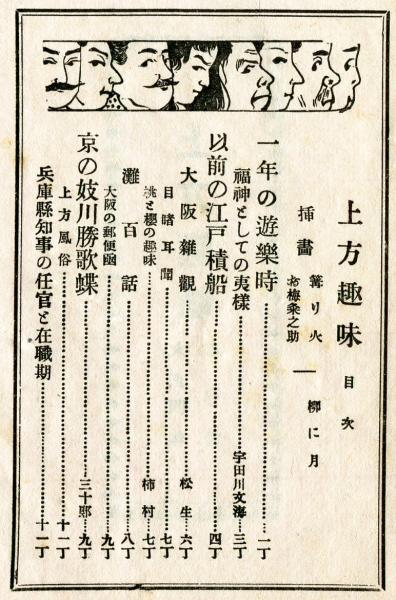 上方趣味 目次
挿畫 篝り火 — 柳に月
お梅粂之助
一年の遊樂時 一丁
福神としての夷樣 宇田川文海 三丁
以前の江戸積船 四丁
大阪雜觀 松生 六丁
目睹耳聞 七丁
桃と櫻の趣味 柿村 七丁
灘百話 八丁
大阪の郵便凾 九丁
京の妓川勝歌蝶 三十郎 九丁
上方風俗 十一丁
兵庫縣知事の任官と在職期 十一丁